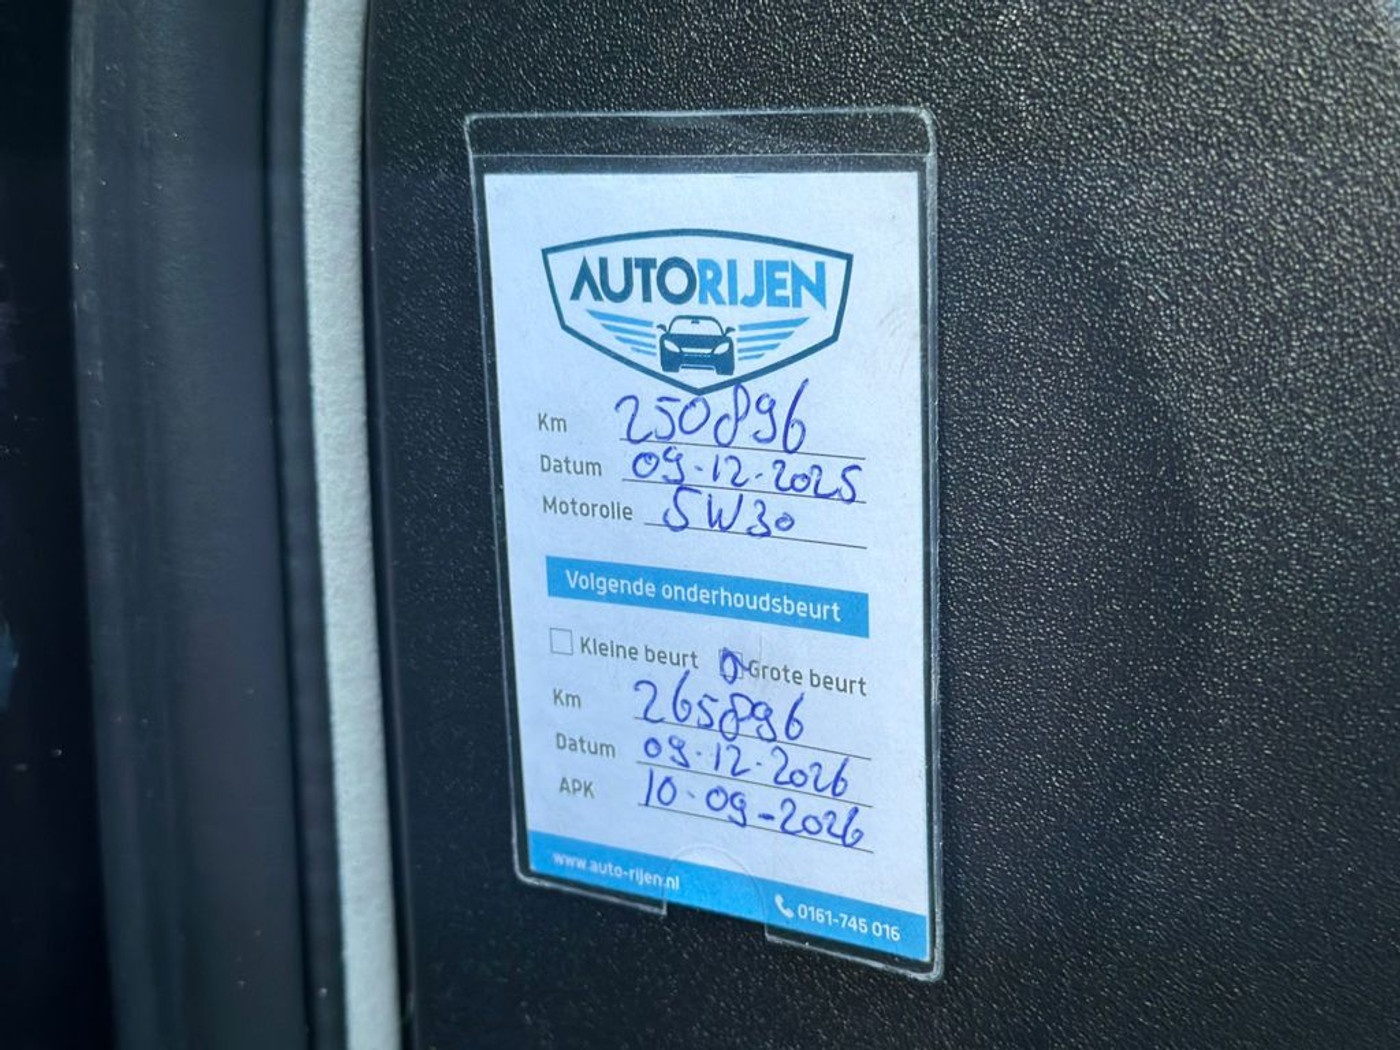 AUTORIJEN
Km 250896
Datum 09-12-2025
Motorolie 5W30
Volgende onderhoudsbeurt
Kleine beurt Grote beurt
Km 265896
Datum 09-12-2026
APK 10-09-2026
www.auto-rijen.nl 0161-745 016